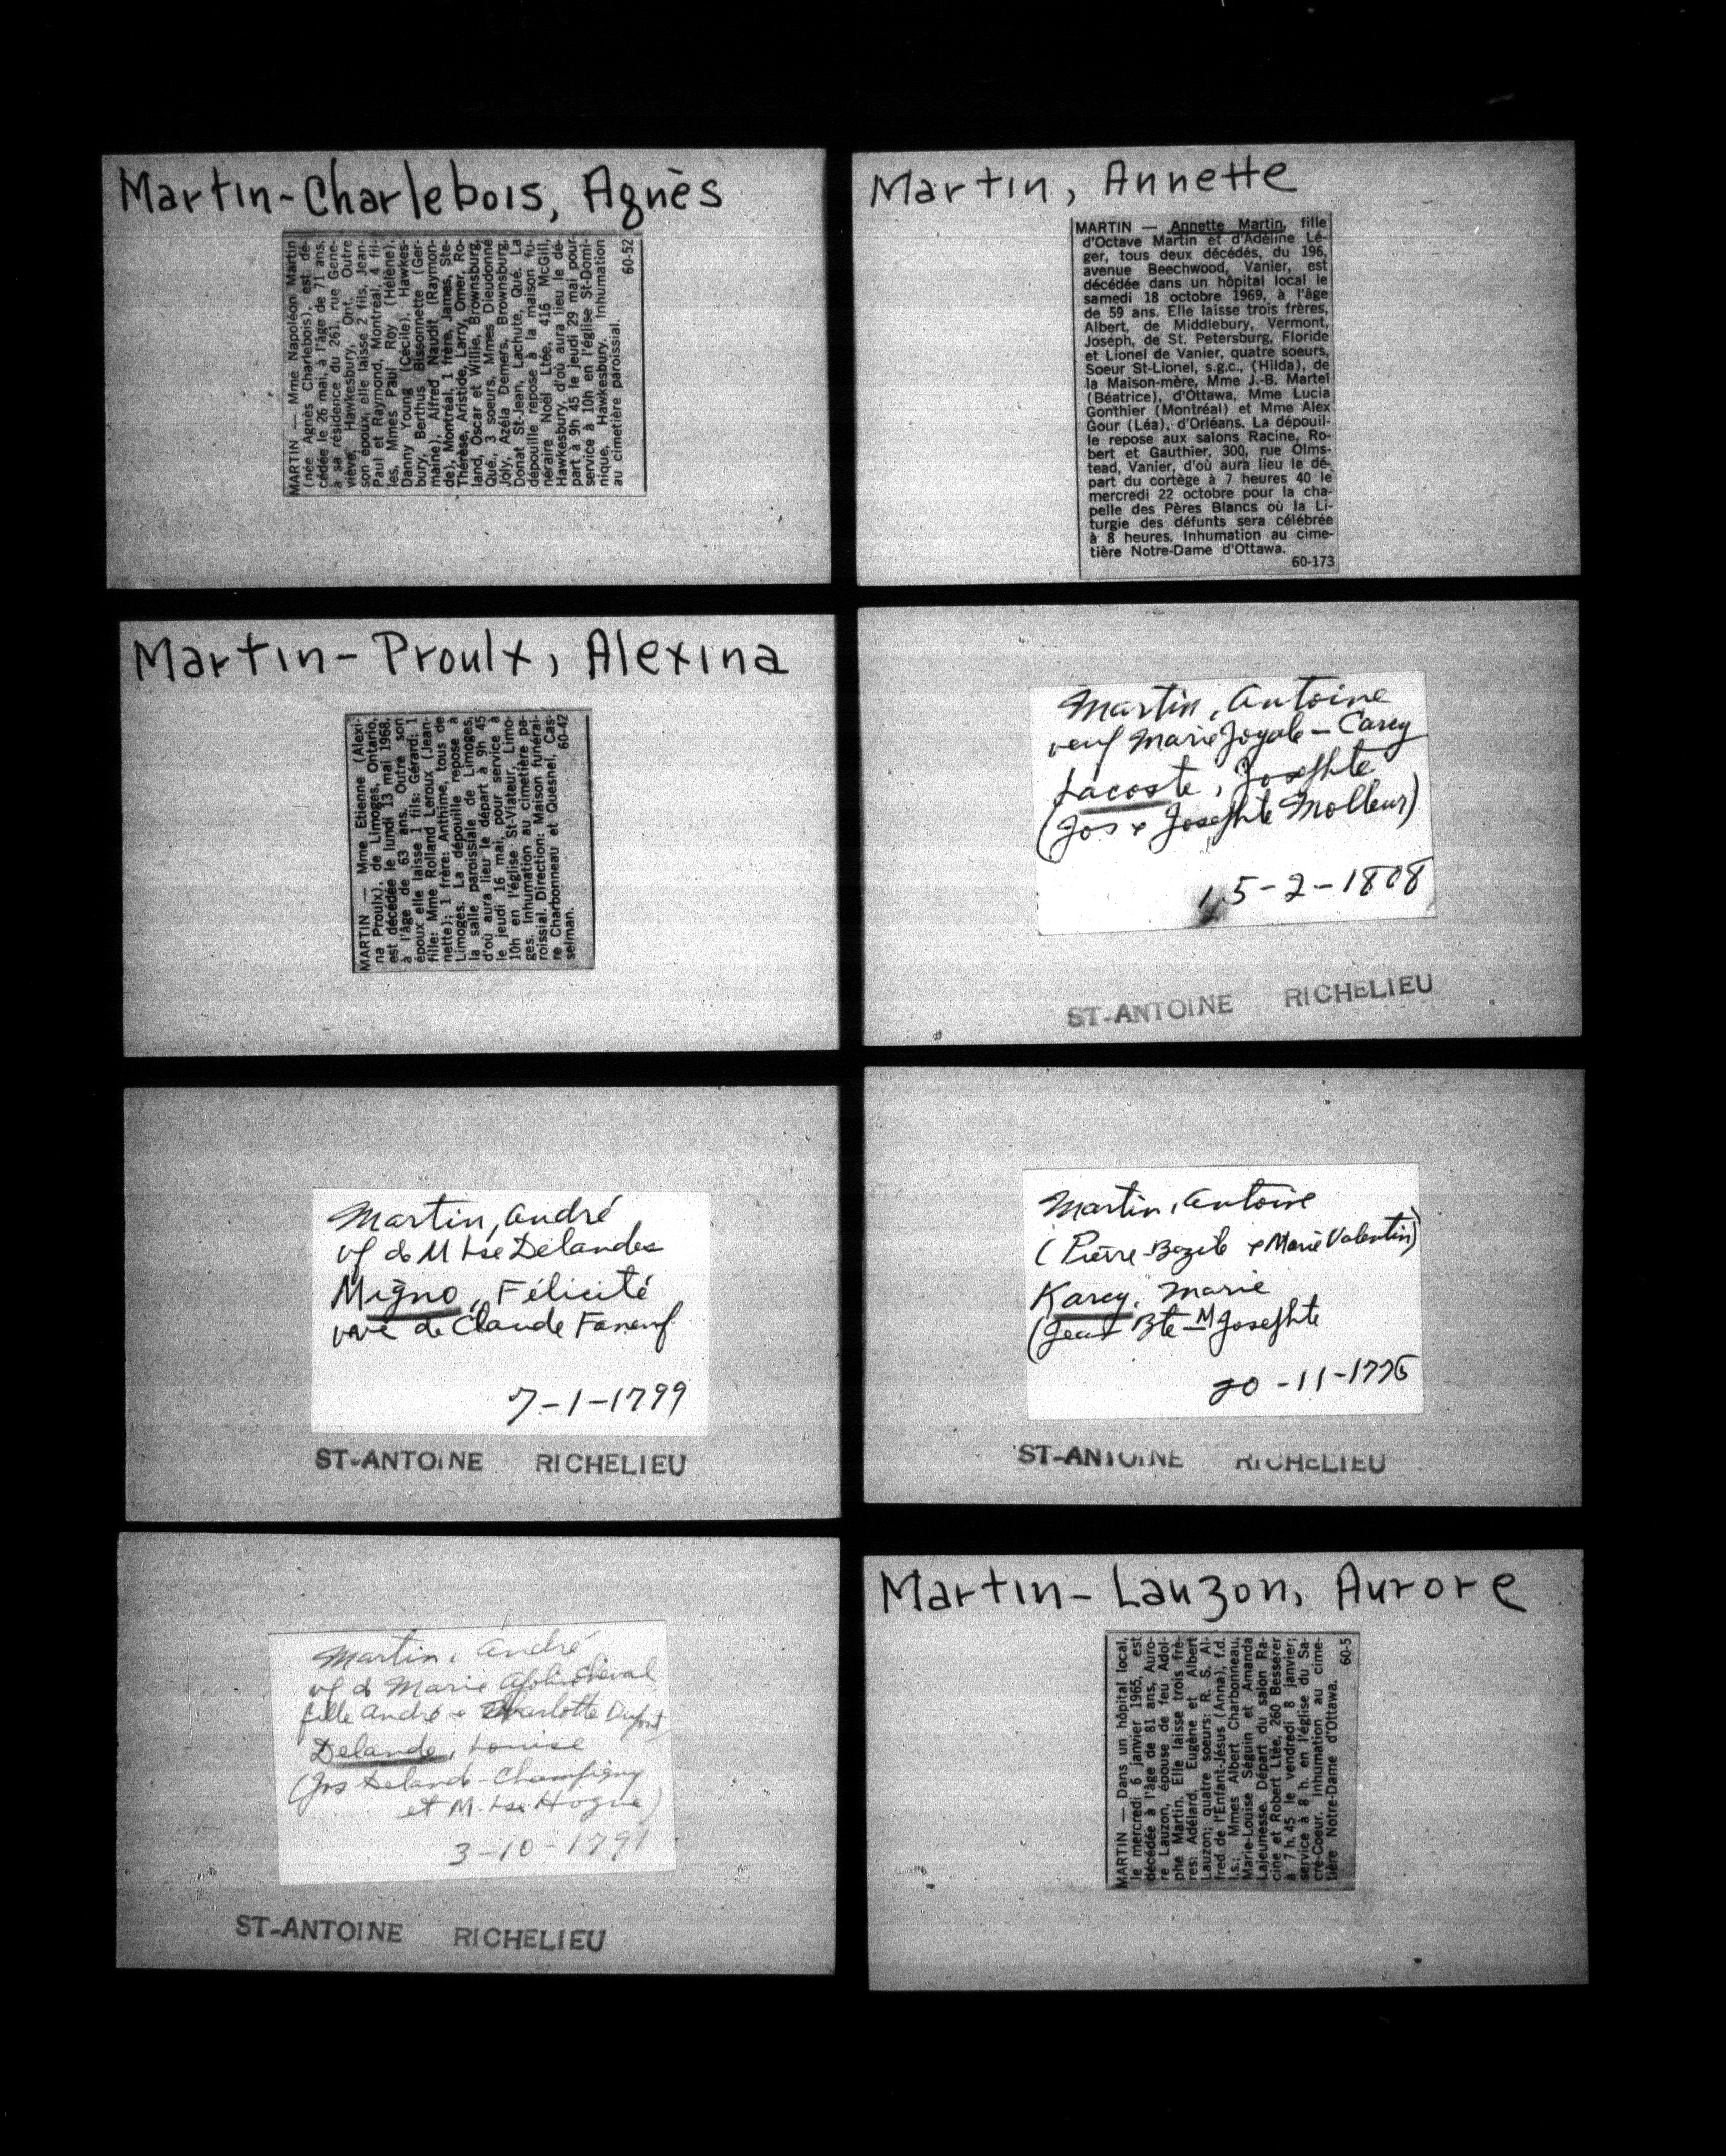 Martin-Charlebois, Agnès
MARTIN — Mme Napoléon Martin
(née Agnès Charlebois), est dé-
cédée le 26 mai, à l'âge de 71 ans,
à sa résidence du 261, rue Gene-
viève, Hawkesbury, Ont. Outre
son époux, elle laisse 2 fils, Jean-
Paul et Raymond, Montréal, 4 fil-
les, Mmes Paul Roy (Hélène),
Danny Young (Cécile), Hawkes-
bury, Berthus Bissonnette (Ger-
maine), Alfred Naudit (Raymon-
de), Montréal, 1 frère, James, Ste-
Thérèse, Aristide, Larry, Omer, Ro-
land, Oscar et Willie, Brownsburg,
Qué., 3 soeurs, Mmes Dieudonné
Joly, Azélia Demers, Brownsburg,
Donat St-Jean, Lachute, Qué. La
dépouille repose à la maison fu-
néraire Noël Ltée, 416 McGill,
Hawkesbury, d'où aura lieu le dé-
part à 9h 45 le jeudi 29 mai pour
service à 10h en l'église St-Domi-
nique, Hawkesbury. Inhumation
au cimetière paroissial.
60-52
Martin, Annette
MARTIN — Annette Martin, fille
d'Octave Martin et d'Adéline Lé-
ger, tous deux décédés, du 196,
avenue Beechwood, Vanier, est
décédée dans un hôpital local le
samedi 18 octobre 1969, à l'âge
de 59 ans. Elle laisse trois frères,
Albert, de Middlebury, Vermont,
Joseph, de St. Petersburg, Floride
et Lionel de Vanier, quatre soeurs,
Soeur St-Lionel, s.g.c., (Hilda), de
la Maison-mère, Mme J.-B. Martel
(Béatrice), d'Ottawa, Mme Lucia
Gonthier (Montréal) et Mme Alex
Gour (Léa), d'Orléans. La dépouil-
le repose aux salons Racine, Ro-
bert et Gauthier, 300, rue Olms-
tead, Vanier, d'où aura lieu le dé-
part du cortège à 7 heures 40 le
mercredi 22 octobre pour la cha-
pelle des Pères Blancs où la Li-
turgie des défunts sera célébrée
à 8 heures. Inhumation au cime-
tière Notre-Dame d'Ottawa.
60-173
Martin-Proulx, Alexina
MARTIN — Mme Etienne (Alexi-
na Proulx), de Limoges, Ontario,
est décédée le lundi 13 mai 1968,
à l'âge de 63 ans. Outre son
époux elle laisse 1 fils: Gérard; 1
fille: Mme Rolland Leroux (Jean-
nette); 1 frère: Anthime, tous de
Limoges. La dépouille repose à
la salle paroissiale de Limoges,
d'où aura lieu le départ à 9h 45
le jeudi 16 mai, pour service à
10h en l'église St-Viateur, Limo-
ges. Inhumation au cimetière pa-
roissial. Direction: Maison funérai-
re Charbonneau et Quesnel, Cas-
selman.
60-42
Martin, Antoine
veuf Marie Joyale - Carey
Lacoste, Josephte
(Jos & Josephte Molleur)
15-2-1808
ST-ANTOINE RICHELIEU
Martin, André
vf de M Tse Delandes
Migno, Félicité
vve de Claude Faneuf
7-1-1799
ST-ANTOINE RICHELIEU
Martin, Antoine
(Pierre-Bazile & Marie Valentin)
Karey, Marie
(Jean Bte - M Josephte
20-11-1775
ST-ANTOINE RICHELIEU
Martin, André
vf de Marie
fille André & Charlotte
Delande, Louise
(Jos Delande-Champigny
et M. Tse Hogue)
3-10-1791
ST-ANTOINE RICHELIEU
Martin-Lauzon, Aurore
MARTIN — Dans un hôpital local,
le mercredi 6 janvier 1965, est
décédée à l'âge de 81 ans, Auro-
re Lauzon, épouse de feu Adol-
phe Martin. Elle laisse trois frè-
res: Adélard, Eugène et Albert
Lauzon; quatre soeurs: R. S. Al-
fred de l'Enfant-Jésus (Anna), f.d.
l.s.; Mmes Albert Charbonneau,
Marie-Louise Séguin et Amanda
Lajeunesse. Départ du salon Ra-
cine et Robert Ltée, 260 Besserer
à 7 h. 45 le vendredi 8 janvier;
service à 8 h. en l'église du Sa-
cré-Coeur. Inhumation au cime-
tière Notre-Dame d'Ottawa.
60-5